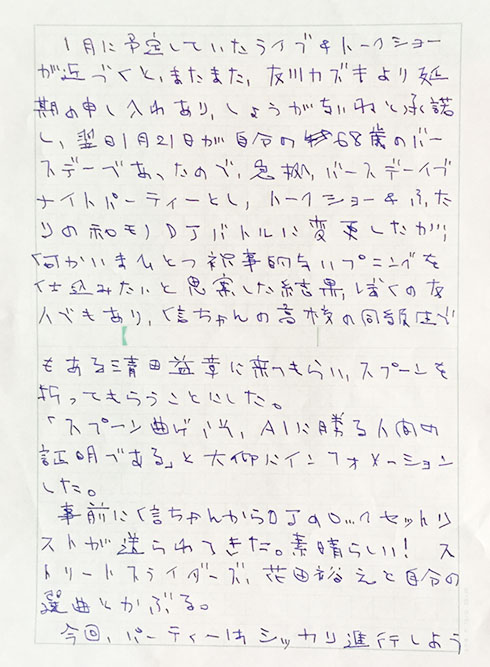 1月に予定していたライブ&トークショー
が近づくと、またまた、友川カズキより延
期の申し入れあり、しょうがないねと承諾
し、翌日1月21日が自分の68歳のバー
スデーであったので、急拠、バースデーイブ
ナイトパーティーとし、トークショー&ふた
りの和モノDJバトルに変更したが、
何かいまひとつ祝事的なハプニングを
仕込みたいと思案した結果、ぼくの友
人でもあり、信ちゃんの高校の同級生で
もある清田益章に来てもらい、スプーンを
折ってもらうことにした。
「スプーン曲げこそ、AIに勝る人間の
証明である」と大仰にインフォメーション
した。
事前に信ちゃんからDJのロックセットリ
ストが送られてきた。素晴らしい! ス
トリートスライダーズ、花田裕之と自分の
選曲とかぶる。
今回、パーティーはシッカリ進行しよう